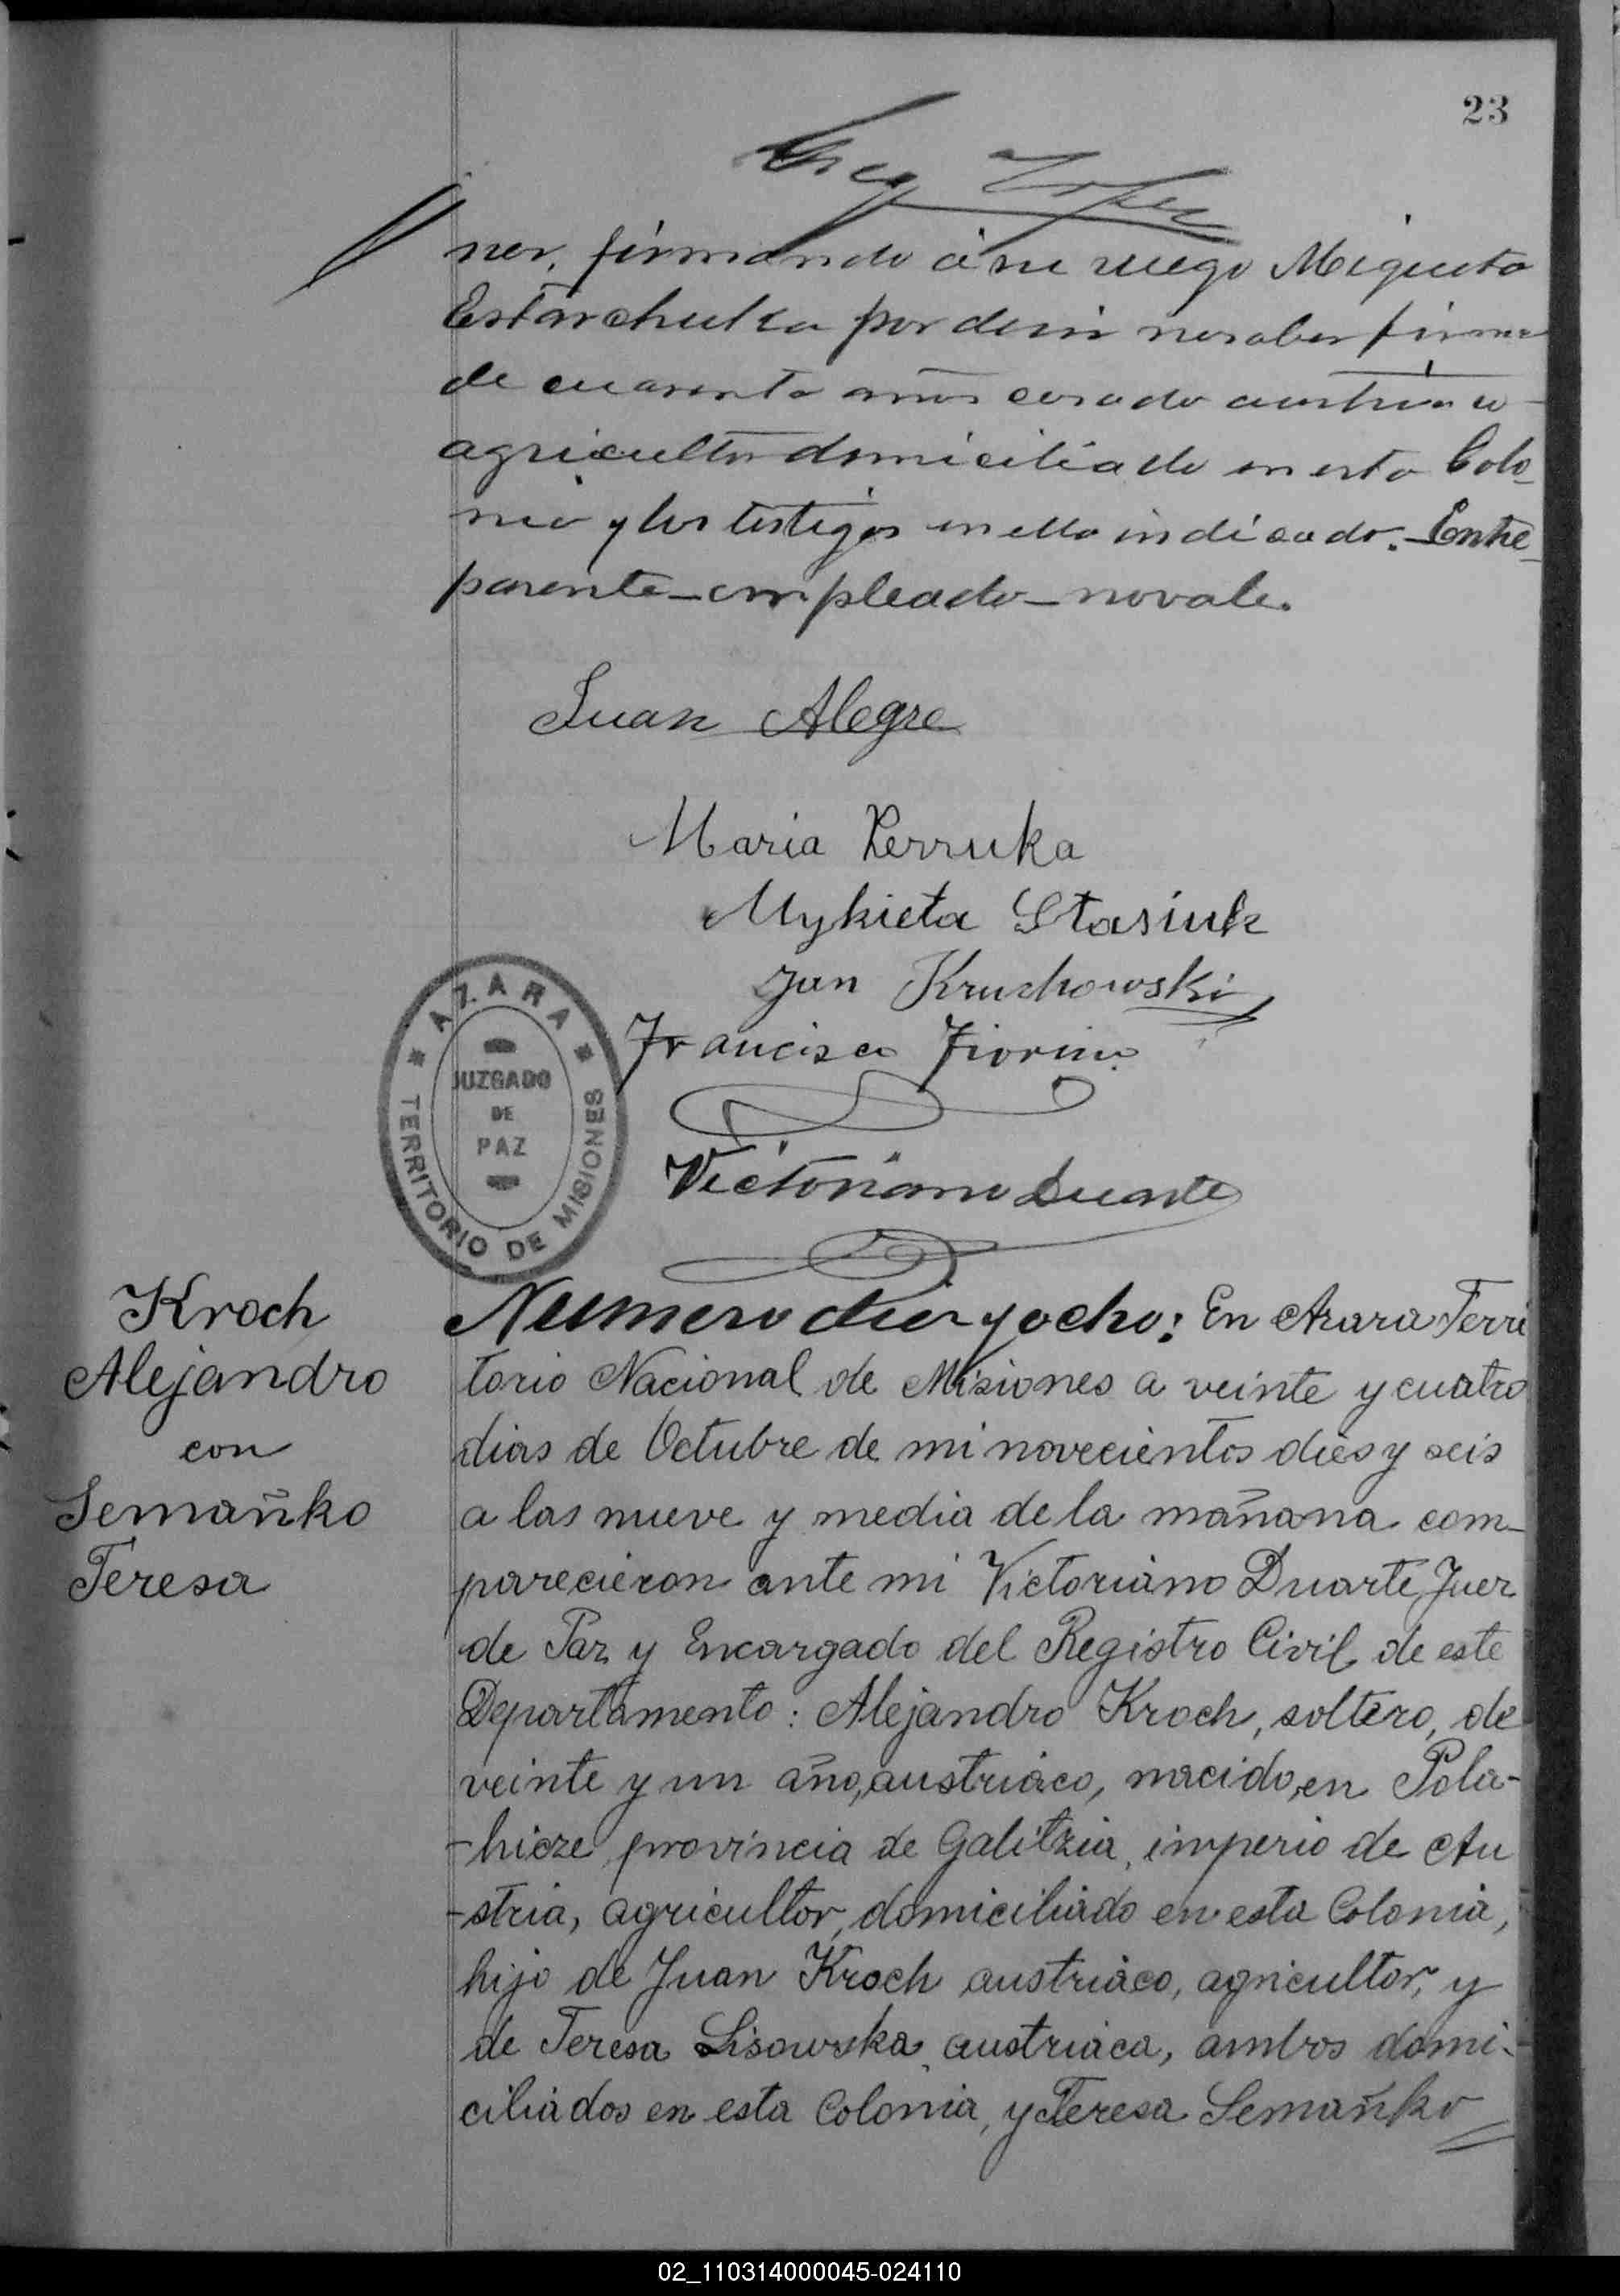 23
ner, firmando á su ruego Miqueta
Estarchuka por decir no saber firmar
de cuarenta años casado austriaco
agricultor domiciliado en esta Colo-
nia y los testigos en ella indicado. Entre
parente-empleado-no vale.
Juan Alegre
Maria Perruka
Mykieta Stasiuk
Jan Kruchowski
Francisco Fiorino
AZARA
JUZGADO
DE
PAZ
TERRITORIO DE MISIONES
Victoriano Duarte
Kroch
Alejandro
con
Semañko
Teresa
Numero diez y ocho: En Azara Terri
torio Nacional de Misiones a veinte y cuatro
dias de Octubre de mi novecientos diés y seis
a las nueve y media de la mañana com-
parecieron ante mi Victoriano Duarte, Juez
de Paz y Encargado del Registro Civil de este
Departamento: Alejandro Kroch, soltero, de
veinte y un año, austriáco, nacido, en Pola-
-hicze, provincia de Galitzia, imperio de Au
-stria, agricultor, domiciliado en esta Colonia,
hijo de Juan Kroch austriáco, agricultor, y
de Teresa Lisowska, austriáca, ambos domi-
ciliádos en esta Colonia, y Teresa Semañko
02_110314000045-024110